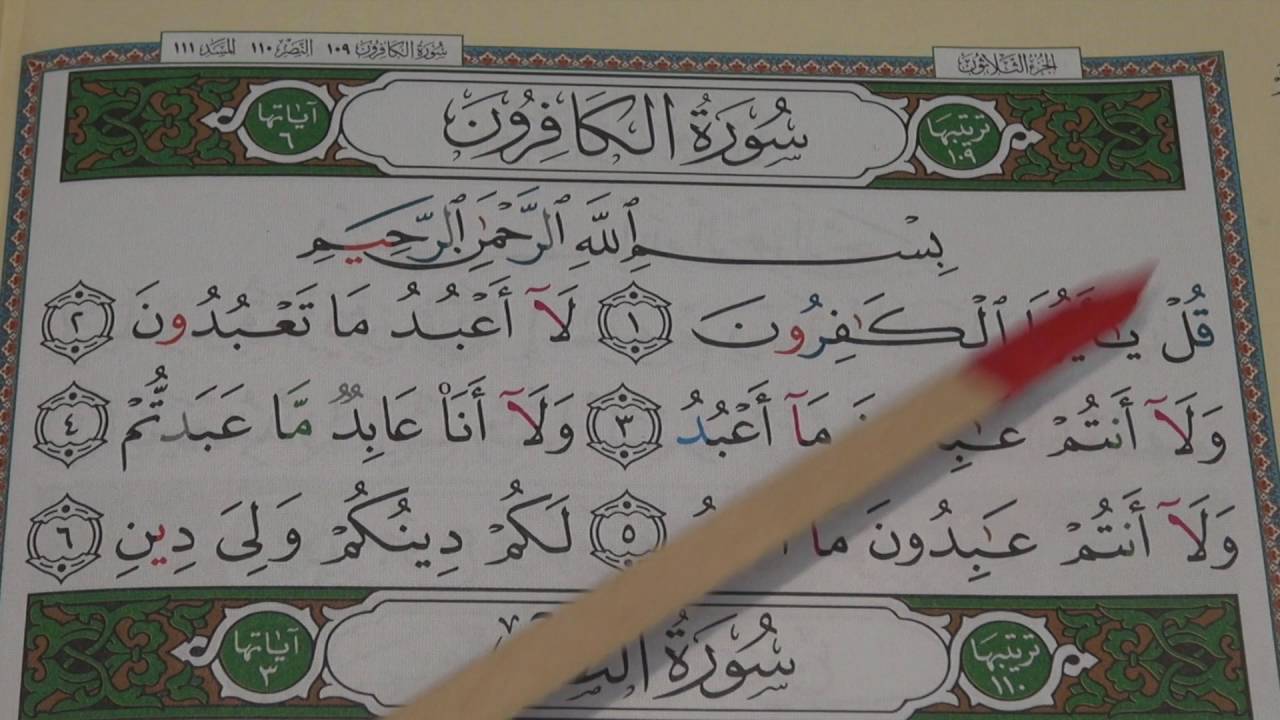 الجزء الثلاثون
سورة الكافرون ١٠٩ النصر ١١٠ المسد ١١١
ترتيبها ١٠٩
سُورَةُ الكَافِرُونَ
آياتها ٦
بِسْمِ ٱللَّهِ ٱلرَّحْمَٰنِ ٱلرَّحِيمِ
قُلْ ٱلْكَٰفِرُونَ ١ لَآ أَعْبُدُ مَا تَعْبُدُونَ ٢
وَلَآ أَنتُمْ مَآ أَعْبُدُ ٣ وَلَآ أَنَا۠ عَابِدٌ مَّا عَبَدتُّمْ ٤
وَلَآ أَنتُمْ عَٰبِدُونَ مَآ ٥ لَكُمْ دِينُكُمْ وَلِىَ دِينِ ٦
ترتيبها ١١٠
سُورَةُ
آياتها ٣